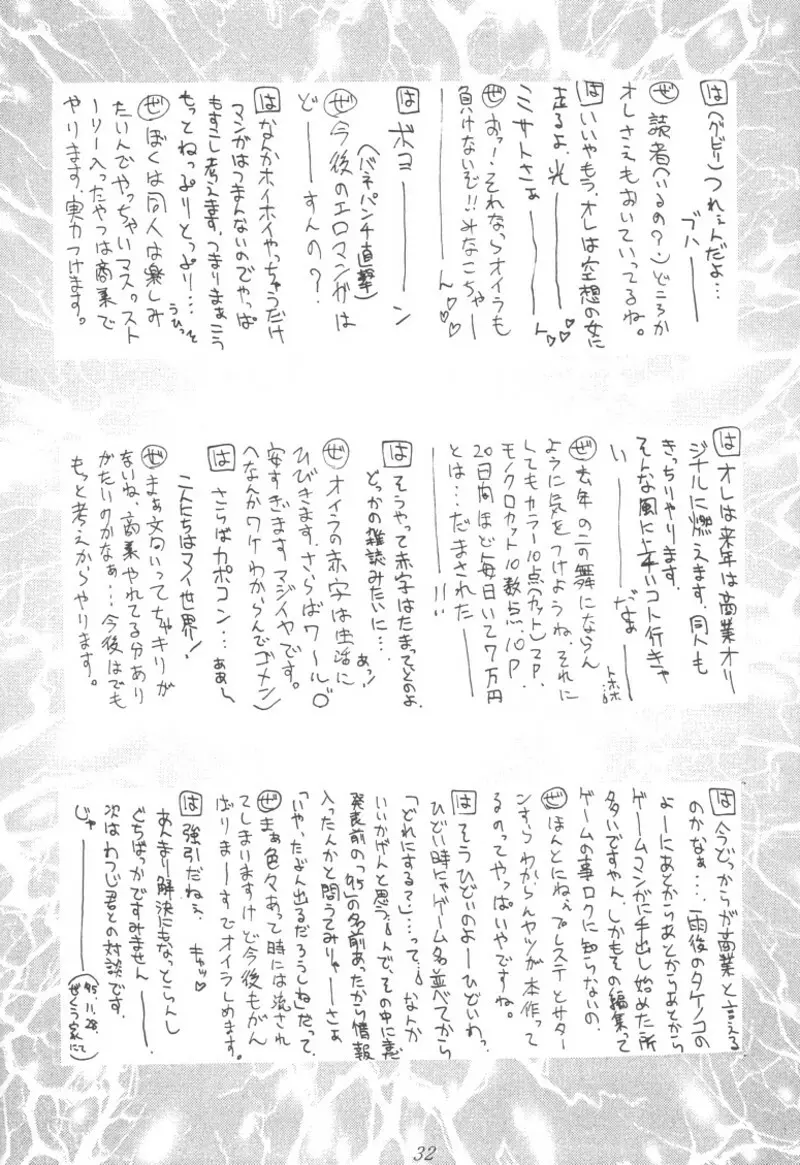 は (グビリ) つれぇんだよ…
ブハ――
ぜ 読者(いるの?)どころか
オレさえもおいていってるね。
は いいやもう、オレは空想の女に
走るよ、光――ん♡♡
ミサトさぁ――
ぜ おっ!それならオイラも
負けないぞ!!みなこちゃー
――ん♡♡
は ボヨ――ン
(バネパンチ直撃)
ぜ 今後のエロマンガは
ど――すんの?
は なんかホイホイやっちゃうだけ
マンガはつまんないのでやっぱ
もすこし考えます。つまりまぁこう
もっとねっぷりとっぷり… うひっっと
ぜ ぼくは同人は楽しみ
たいんでやっちゃいマス。スト
ーリー入ったやつは商業で
やります。実力つけます。
は オレは来年は商業オリ
ジナルに燃えます。同人も
きっちりやります。
そんな風に上手いコト行きゃ
い――だよ―― トホホ…
ぜ 去年の二の舞にならん
ように気をつけようね。それに
してもカラー10点(カット)2P、
モノクロカット10数点、10P
20日間ほど毎日かいて7万円
とは…だまされた――
――!!
は そうやって赤字はたまってくのよ、
どっかの雑誌みたいに…
あっ!
ぜ オイラの赤字は生活に
ひびきます。さらばワールド
安すぎます マジイヤです。
(なんかワケわからんでゴメン)
は さらばカポコン… ああ〜
こんにちはマイ世界!
ぜ まぁ文句いってちゃキリが
ないね、商業やれてる分あり
がたいのかなぁ…今後はでも
もっと考えからやります。
は 今どっからが商業と言える
のかなぁ…雨後のタケノコの
よーにあとからあとからあとから
ゲームマンガに手出し始めた所
多いですやん、しかもその編集って
ゲームの事ロクに知らないの、
ぜ ほんとにねぇ プレステとサター
ンすらわからんヤツが本作って
るのってやっぱいやですね。
は そうひどいのよーひどいわっ
ひどい時にゃゲーム名並べてから
「どれにする?」…って。なんか
いいかげんと思う。んで、その中に未
発表前の「'95」の名前あったから情報
入ったんかと問うてみりゃーさぁ
「いや、たぶん出るだろうしね」だって、
ぜ まぁ色々あって時には流され
てしまいますけど今後もがん
ばりまーすでオイラしめます。
は 強引だねぇ、 キャッ♡
あんまり解決にもなっとらんし
ぐちばっかですみません――.
次はわつじ君との対談です。
じゃ――― ('95.11.28. ぜくう家にて)
32